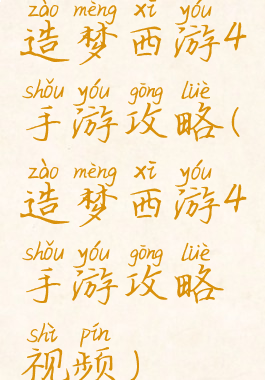 zào mèng xī yóu
造梦西游4
shǒu yóu gōng lüè
手游攻略(
zào mèng xī yóu
造梦西游4
shǒu yóu gōng lüè
手游攻略
shì pín
视频)